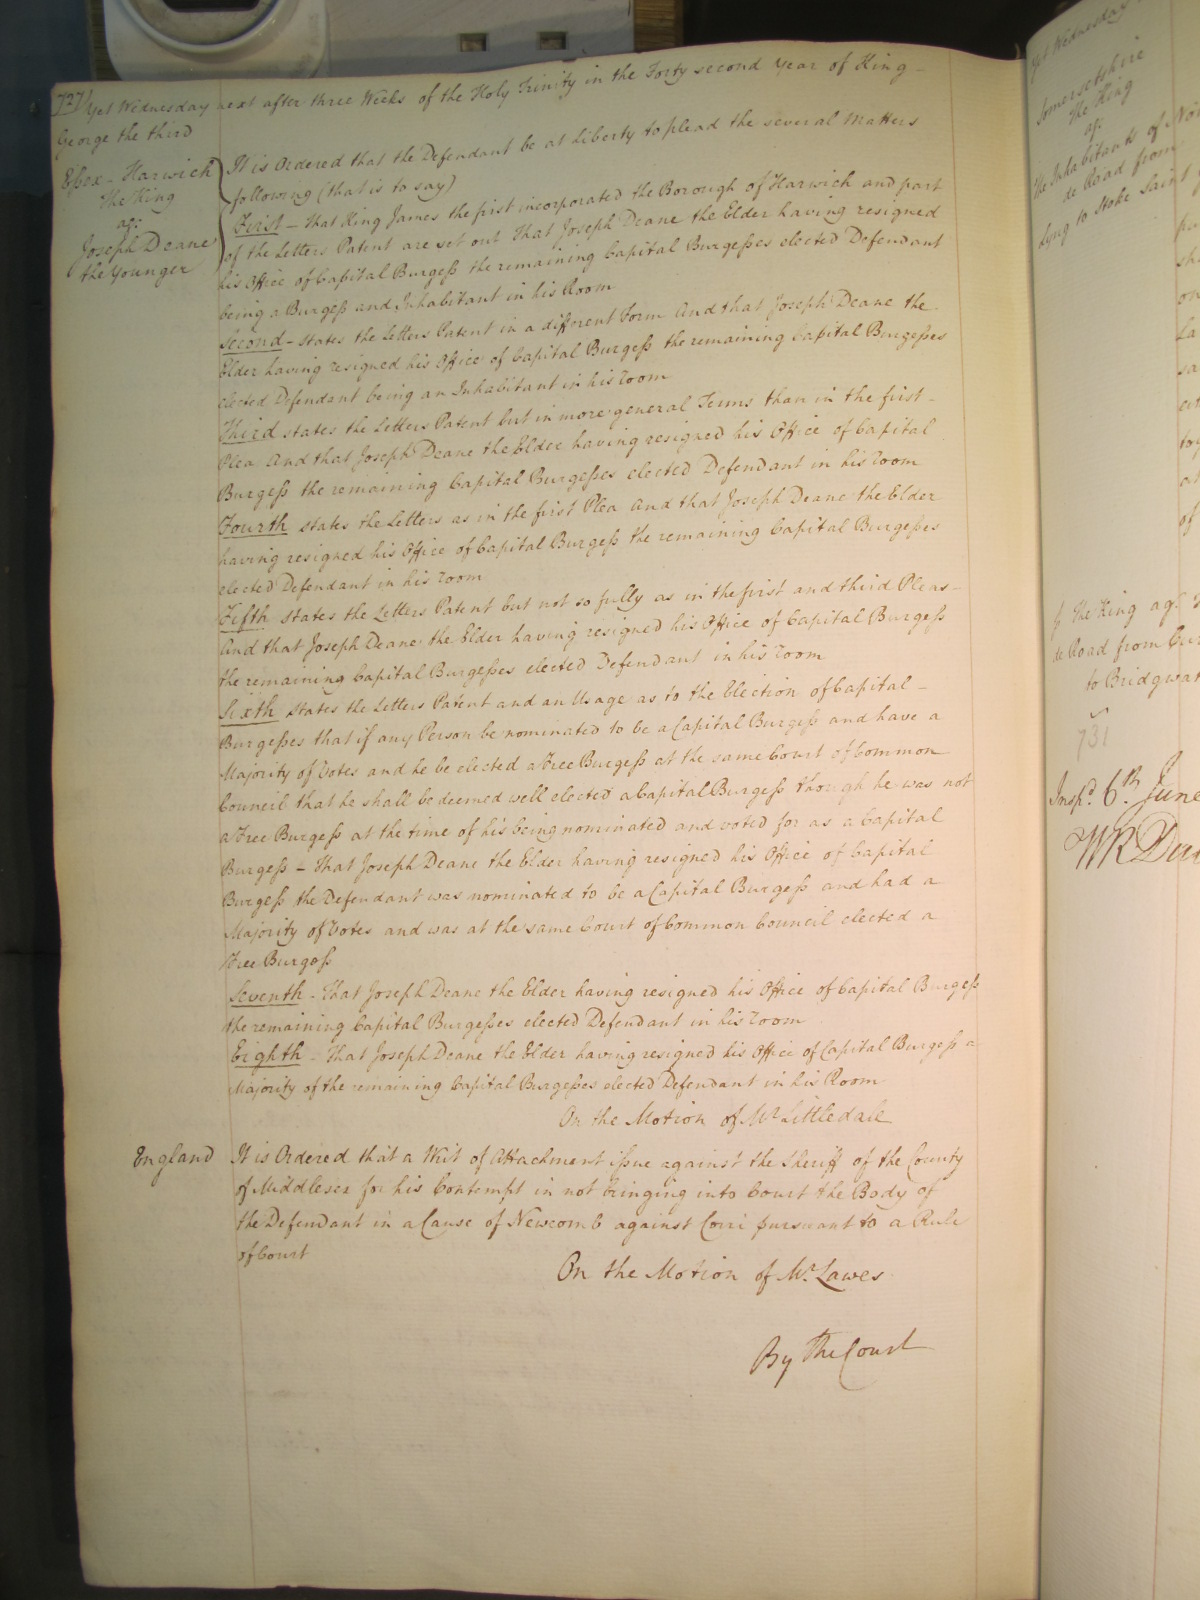 727 Yet Wednesday next after three Weeks of the Holy Trinity in the Forty second Year of King -
George the third
Essex - Harwich
The King
agt.
Joseph Deane
the Younger
It is Ordered that the Defendant be at Liberty to plead the several Matters
following (that is to say)
First - That King James the first incorporated the Borough of Harwich and part
of the Letters Patent are set out That Joseph Deane the Elder having resigned
his Office of Capital Burgess the remaining Capital Burgesses elected Defendant
being a Burgess and Inhabitant in his Room
Second - States the Letters Patent in a different Form And that Joseph Deane the
Elder having resigned his Office of Capital Burgess the remaining Capital Burgesses
elected Defendant being an Inhabitant in his room
Third states the Letters Patent but in more general Terms than in the first -
Plea And that Joseph Deane the Elder having resigned his Office of Capital
Burgess the remaining Capital Burgesses elected Defendant in his room
Fourth states the Letters as in the first Plea And that Joseph Deane the Elder
having resigned his Office of Capital Burgess the remaining Capital Burgesses
elected Defendant in his room
Fifth states the Letters Patent but not so fully as in the first and third Pleas -
And that Joseph Deane the Elder having resigned his Office of Capital Burgess
the remaining Capital Burgesses elected Defendant in his room
Sixth states the Letters Patent and an Usage as to the Election of Capital -
Burgesses that if any Person be nominated to be a Capital Burgess and have a
Majority of Votes and he be elected a Free Burgess at the same Court of Common
Council that he shall be deemed well elected a Capital Burgess though he was not
a Free Burgess at the time of his being nominated and voted for as a Capital
Burgess - That Joseph Deane the Elder having resigned his Office of Capital
Burgess the Defendant was nominated to be a Capital Burgess and had a
Majority of Votes and was at the same Court of Common Council elected a
Free Burgess
Seventh - That Joseph Deane the Elder having resigned his Office of Capital Burgess
the remaining Capital Burgesses elected Defendant in his room
Eighth - That Joseph Deane the Elder having resigned his Office of Capital Burgess a
Majority of the remaining Capital Burgesses elected Defendant in his Room
On the Motion of Mr Littledale
England
It is Ordered that a Writ of Attachment issue against the Sheriff of the County
of Middlesex for his Contempt in not bringing into Court the Body of
the Defendant in a Cause of Newcomb against Corri pursuant to a Rule
of Court
On the Motion of Mr Lawes
By The Court
Yet Wednesday
Somersetshire
The King
agt.
The Inhabitants of
de Road from
Lyng to Stoke Saint
The King agt
de Road from
to Bridgwat
731
Inspd. 6th June